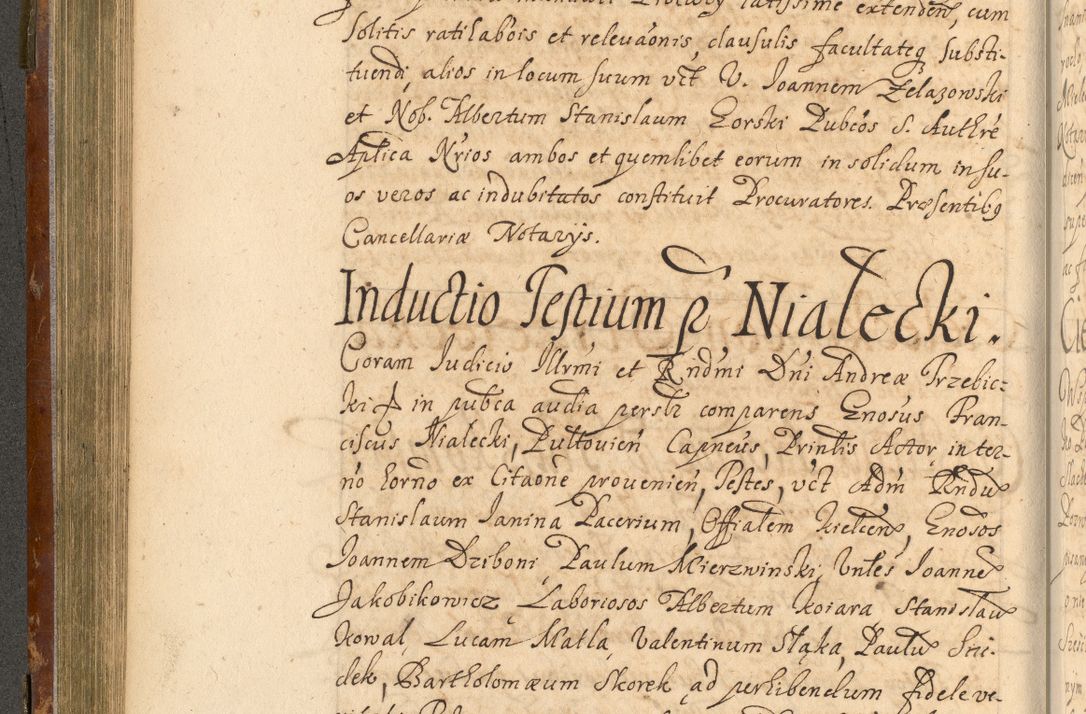 latissime extendeń, cum
Solitis ratihabois et relevaonis, clausulis facultateq substi-
tuendi, alios in locum suum vct V. Ioannem Żelazowski
et Nob. Albertum Stanislaum Gorski Pubcos S. Authre
Aplica Nrios ambos et quemlibet eorum in solidum in su-
os veros ac indubitatos constituit Procuratores. Præsentibq
Cancellariæ Notarijs.
Inductio Testium p Niałecki.
Coram Iudicio Illrmi et Rndmi Dni Andreæ Trzebic-
ki in pubca audia persltr comparens Gnosus Fran-
ciscus Niałecki, Pultovień Capneus, Prinlis Actor in ter-
no horno ex Citaone provenień, Testes, vct Adm Rndu
Stanislaum Ianina Pacerium, Offialem kielcen, Gnosos
Ioannem Dziboni, Paulum Mierzwinski, Vnłes Ioanne
Jakobikowicz Laboriosos Albertum koiara Stanislau
kowal, Lucam Matla, Valentinum Sląka, Paulu
dek, Bartholomæum Skorek ad perhibendum fidele ve-